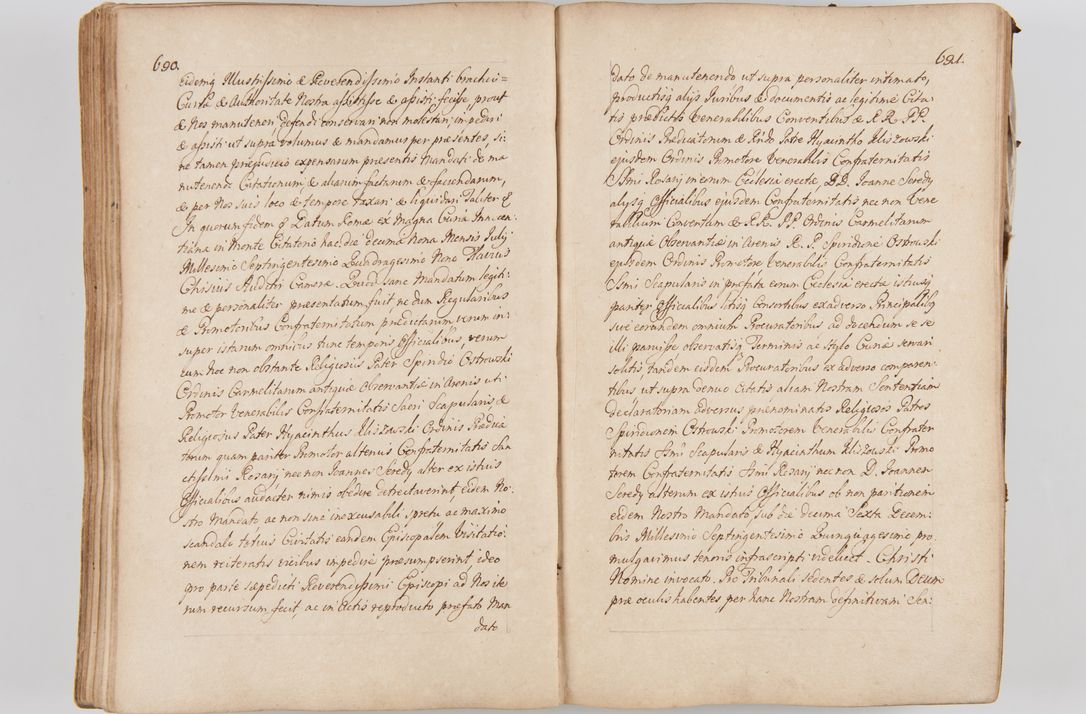 690.
Eidemq Illustrissimo & Reverendissimo Instanti brachii=
Curta & Authoritate Nostra assistisse & assisti fecisse, prout
& Nos manuteneri defendi conservari non molestari, impediri
& assisti ut supra volumus & mandamus per præsentes, si,
ne tamen præjudicio expensarum præsentis Mandati de ma
nutenendo Citationum, & aliarum factarum & faciendarum,
& per Nos suis loco & tempore taxari & liquidari Taliter &
In quorum fidem & Datum Romæ ex Magna Curia Inn, cen,
tiana in Monte Citatorio hac die decima Nona Mensis Julij
Millesimo Septingentesimo Quadragesimo Nono Flavius
Chisius Auditor Cameræ. Quod sane Mandatum legiti:
me & personaliter præsentatum fuit ne dum Regularibus
& Promotoribus Confraternitatum prædictarum verum in:
super istarum omnibus tunc temporis Officialibus, verum
eum hoc non obstante Religiosus Pater Spiridio Ostrowski
Ordinis Carmelitarum antiquæ Observantiæ in Arenis uti
Promotor Venerabilis Confraternitatis Sacri Scapularis &
Religiosus Pater Hyacinthus Kliszowski Ordinis Prædica
torum quam pariter Promotor alterius Confraternitatis San
ctissimi Rosarij nec non Joannes Seredy alter ex istius
Officialibus audacter nimis obedire detrectaverint eidem No:
stro Mandato, ac non sine inexcusabili spretu ac maximo
scandali totius Civitatis eandem Episcopalem Visitatio:
nem reiteratis vicibus impedire præsumpserint, ideo
pro parte sæpedicti Reverendissimi Episcopi ad Nos ite
rum recursum fecit, ac in Actis reproducto præfato Man
dato
691.
dato de manutenendo ut supra personaliter intimato,
productisq alijs Juribus & documentis ac legitime Cita
tis prædictis Venerabilibus Conventibus & R. R. P.P.
Ordinis Prædicatorum & Rndo Patre Hyacintho Kliszowski
ejusdem Ordinis Promotore Venerabilis Confraternitatis
SSmi Rosarij in eorum Ecclesia erectæ, D.D. Joanne Seredy
alysq Officialibus ejusdem Confraternitatis nec non Vene
rabilium Conventum & R.R. P.P. Ordinis Carmelitarum
antiquæ Observantiæ in Arenis R. P. Spiridione Ostrowski
ejusdem Ordinis Promotore Venerabilis Confraternitatis
SSmi Scapularis in præfata eorum Ecclesia erectæ istiusq
pariter Officialibus litisq Consortibus ex adverso, Principalibq
sive eorundem omnium Procuratoribus ad docendum se se
illi paruisse observatisq Terminis ac Stylo Curiæ servari
solitis tandem eisdem Procuratoribus ex adverso comparen:
tibus ut supra denuo Citatis aliam Nostram Sententiam
declaratoriam adversus prænominatos Religiosos Patres
Spiridionem Ostrowski Promotorem Venerabilis Confrater
nitatis Smi Scapularis & Hyacinthum Kliszowski Promo
torem Confraternitatis Smi Rosarij nec non D. Joannem
Seredy alterum ex istius Officialibus ob non paritionem
eidem Nostro Mandato sub die decima Sexta Decem:
bris Millesimo Septingentesimo Quinquagesimo pro,
mulgavimus tenoris infrascripti videlicet. Christi
Nomine invocato. Pro Tribunali sedentes & solum Deum
præ oculis habentes, per hanc Nostram definitivam Sen: